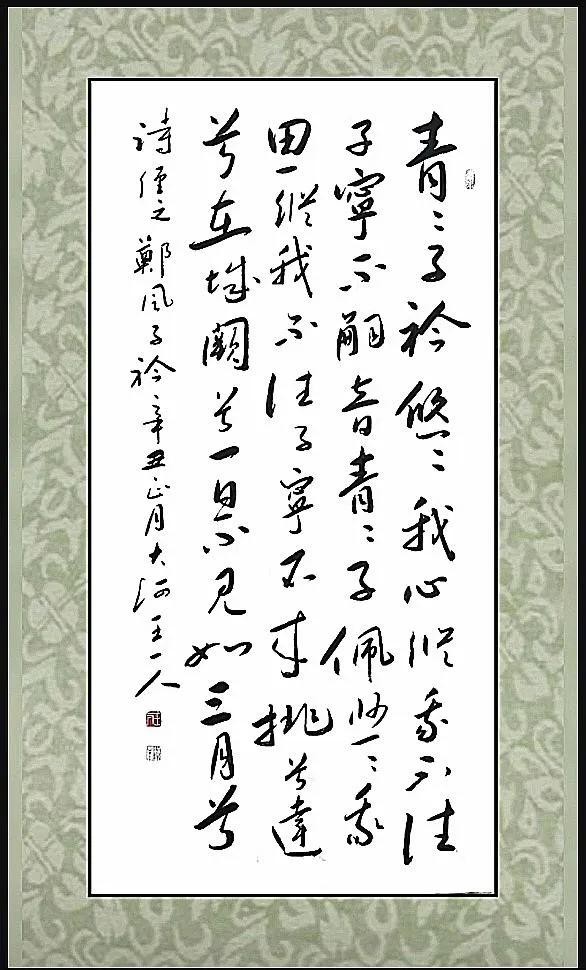 青〻子衿悠〻我心縱我不往
子寧不嗣音青〻子佩悠〻我
思縱我不往子寧不來挑兮達
兮在城闕兮一日不見如三月兮
詩經之鄭風子衿辛丑正月大河王一人